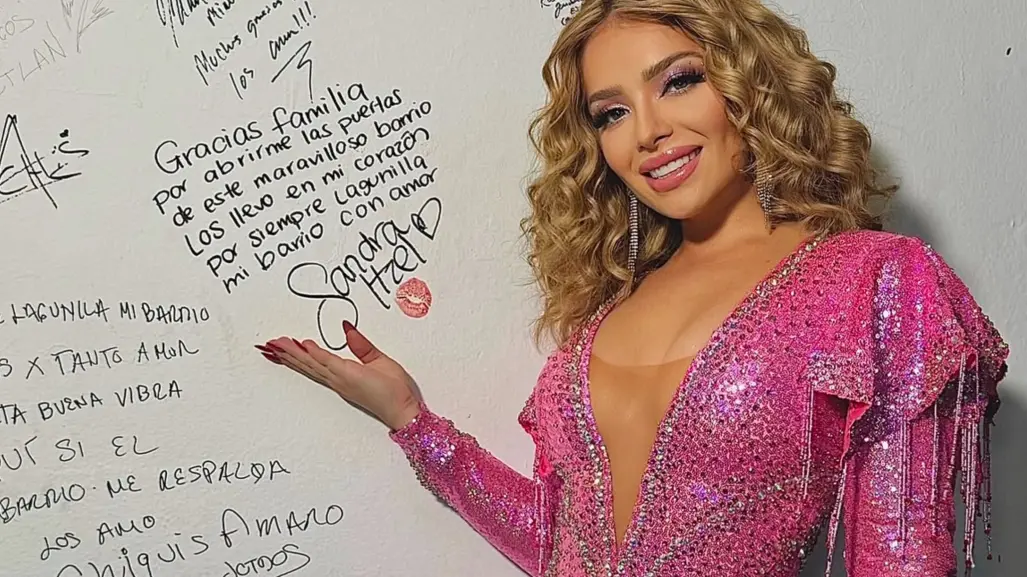 Muchas gracias
los amo!!!
Gracias familia
por abrirme las puertas
de este maravilloso barrio
Los llevo en mi corazón
por siempre Lagunilla
mi barrio con amor
Sandra
Itzel
LAGUNILLA MI BARRIO
S X TANTO AMOR
TA BUENA VIBRA
UÍ SI EL
BARRIO ME RESPALDA
LOS AMO
Chiquis AMARO